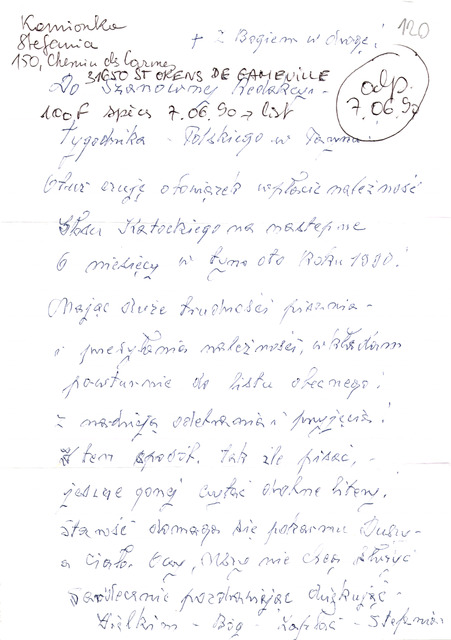 120
Kamionka
Stefania
150, Chemin des Carmes
31650 ST ORENS DE GAMEVILLE
+ Z Bogiem w drogę!
odp.
7.06.90
Do Szanownej Redakcji -
100 F spics 7.06.90 → list
Tygodnika - Polskiego w
Otóż czuję obowiązek wpłacić należność
Głosu Katolickiego na następne
6 miesięcy w tymoto Roku 1990!
Mając duże trudności pisania -
i przesyłania należności, wkładam
powtórnie do listu obecnego!
z nadzieją odebrania i przyjęcia!
W ten sposób. tak źle pisać, -
jeszcze gorzej czytać drobne litery.
Starość domaga się pokarmu Duszy -
a Ciało. nie chcą służyć
serdecznie pozdrawiając dziękując -
Wielkim - Bóg - Zapłać - Stefania